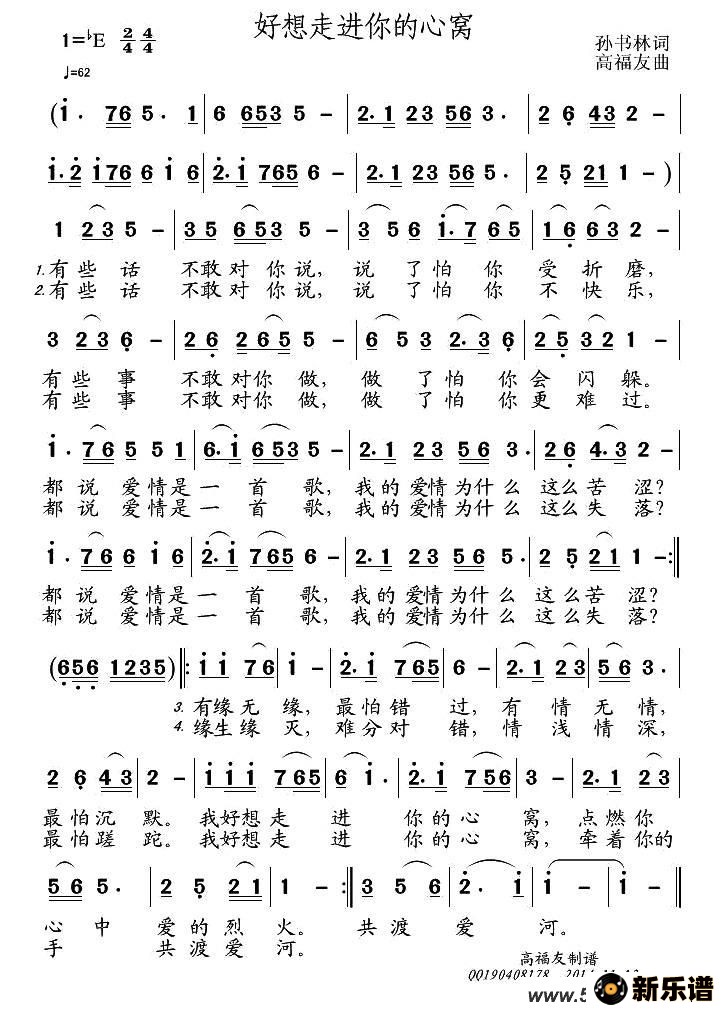 好想走进你的心窝
1=♭E 2/4 4/4
♩=62
孙书林词
高福友曲
(i· 76 5· 1 | 6 653 5 - | 2·1 23 56 3· | 2 6 43 2 - |
i·2 i76 6 i 6 | 2·i 765 6 - | 2·1 23 56 5· | 2 5 21 1 - )
1 23 5 - | 35 653 5 - | 3 56 i·7 65 | 16 63 2 - |
1.有些话 不敢对你说, 说了怕你受折磨,
2.有些话 不敢对你说, 说了怕你不快乐,
3 23 6 - | 26 265 5 - | 6 53 2·3 6 | 25 32 1 - |
有些事 不敢对你做, 做了怕你会闪躲。
有些事 不敢对你做, 做了怕你更难过。
i· 76 5 51 | 6·i 653 5 - | 2·1 23 56 3· | 26 4·3 2 - |
都说爱情是一首歌, 我的爱情为什么这么苦涩?
都说爱情是一首歌, 我的爱情为什么这么失落?
i· 76 6 i6 | 2·i 765 6 - | 2·1 23 56 5· | 2 5 21 1 - :||
都说爱情是一首歌, 我的爱情为什么这么苦涩?
都说爱情是一首歌, 我的爱情为什么这么失落?
(656 1235) ||: ii 76 | i - | 2·i 765 | 6 - | 2·1 23 | 56 3· |
3.有缘无缘, 最怕错过, 有情无情,
4.缘生缘灭, 难分对错, 情浅情深,
26 43 | 2 - | iii i765 | 6 i· | 2·i 756 | 3 - | 2·1 23 |
最怕沉默。我好想走进你的心窝, 点燃你
最怕蹉跎。我好想走进你的心窝, 牵着你的
56 5· | 2 5 221 | 1 - :|| 3 56 | 2· i | i - | i - ||
心中爱的烈火。共渡爱河。
手共渡爱河。
高福友制谱
QQ190408178
www.5
新乐谱